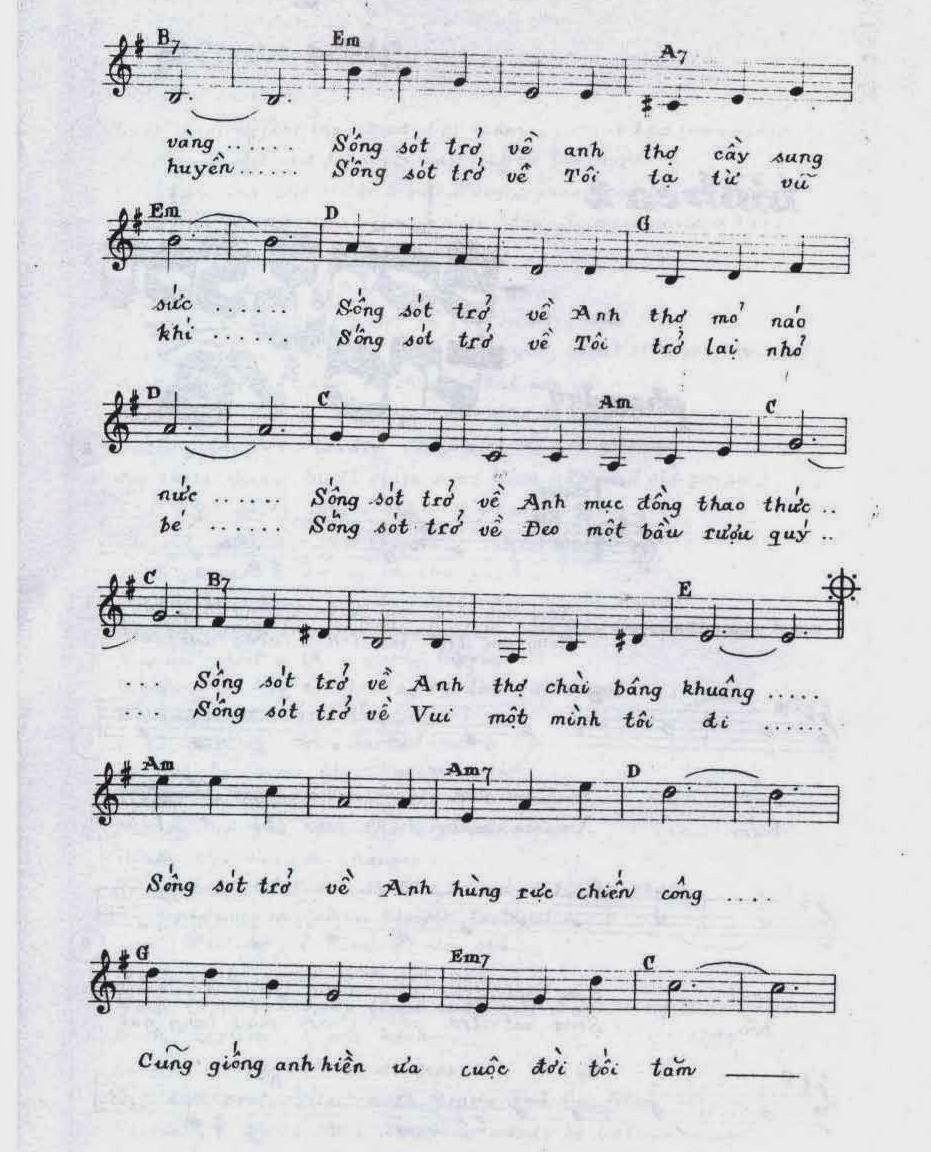 B7 Em A7
vàng ....... Sống sót trở về anh thợ cầy sung
huyền ...... Sống sót trở về Tôi tạ từ vũ
Em D G
sức ...... Sống sót trở về Anh thợ mỏ náo
khí ...... Sống sót trở về Tôi trở lại nhỏ
D C Am C
nức ...... Sống sót trở về Anh mục đồng thao thức ..
bé ...... Sống sót trở về Đeo một bầu rượu quý ..
C B7 E
... Sống sót trở về Anh thợ chài bâng khuâng .....
... Sống sót trở về Vui một mình tôi đi ......
Am Am7 D
Sống sót trở về Anh hùng rực chiến công ....
G Em7 C
Cũng giống anh hiền ưa cuộc đời tối tăm ____